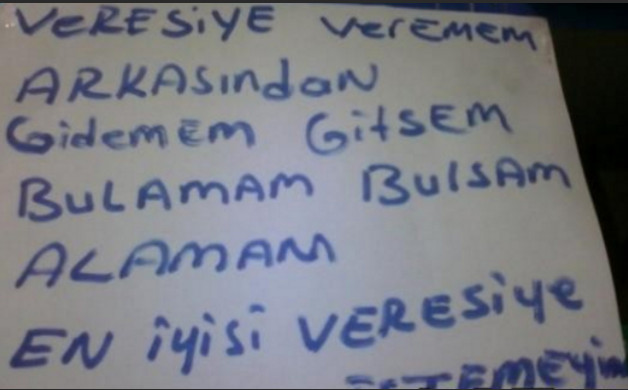 VERESiYE VerEMEM
ARKASındaN
Gidemem GitSEM
BULAMAM BulSAm
ALAMAM
EN iyisi VERESiye
isTEMEyin